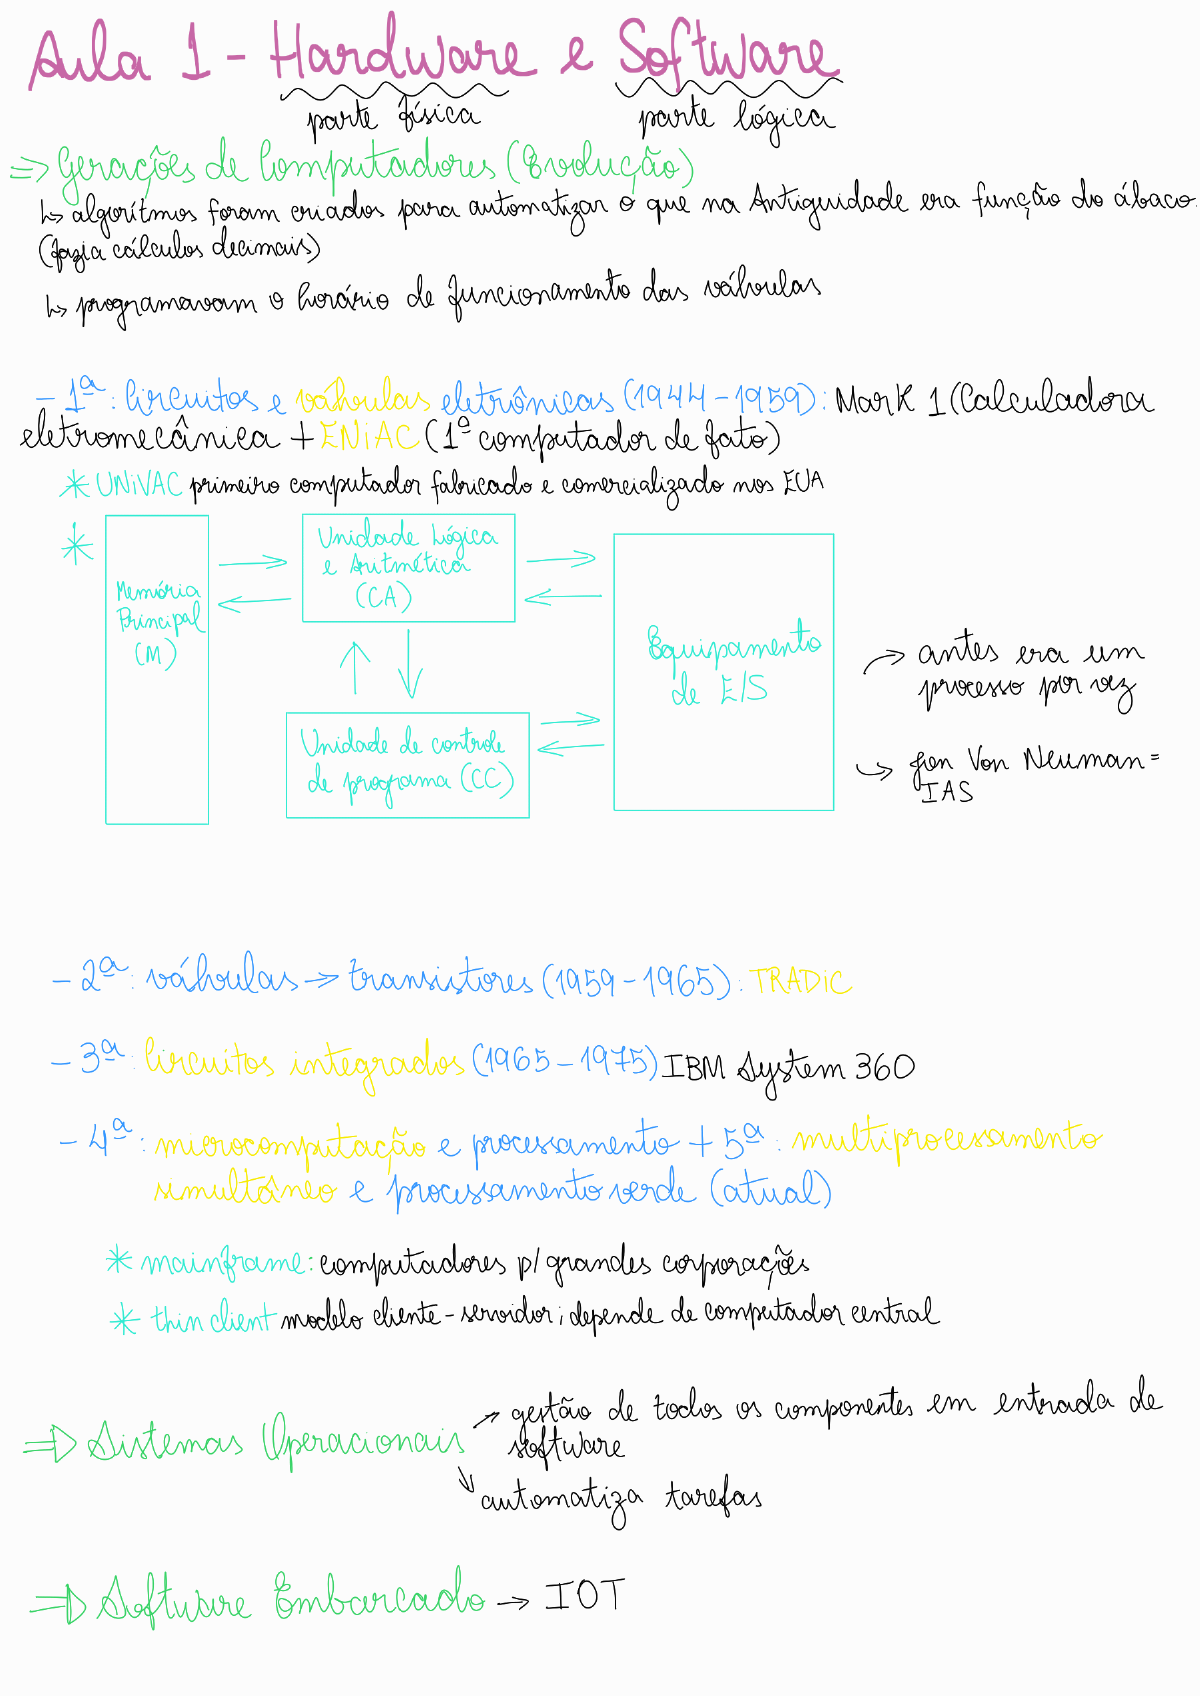 Aula 1 - Hardware e Software
parte física parte lógica
=> Gerações de Computadores (Evolução)
↳ algorítmos foram criados para automatizar o que na Antiguidade era função do ábaco.
(fazia cálculos decimais)
↳ programavam o horário de funcionamento das válvulas
- 1ª: Circuitos e válvulas eletrônicas (1944-1959): Mark 1 (Calculadora
eletromecânica + ENiAC (1º computador de fato)
* UNiVAC primeiro computador fabricado e comercializado nos EUA
*
Memória
Principal
(M)
Unidade Lógica
e Aritmética
(CA)
Unidade de controle
de programa (CC)
Equipamento
de E/S
→ antes era um
processo por vez
→ Von Neuman =
IAS
- 2ª: válvulas → transistores (1959-1965): TRADiC
- 3ª: Circuitos integrados (1965-1975) IBM System 360
- 4ª: microcomputação e processamento + 5ª: multiprocessamento
simultâneo e processamento verde (atual)
* mainframe: computadores p/ grandes corporações
* thin client modelo cliente-servidor; depende de computador central
=> Sistemas Operacionais → gestão de todos os componentes em entrada de
software
↘ automatiza tarefas
=> Software Embarcado → IOT